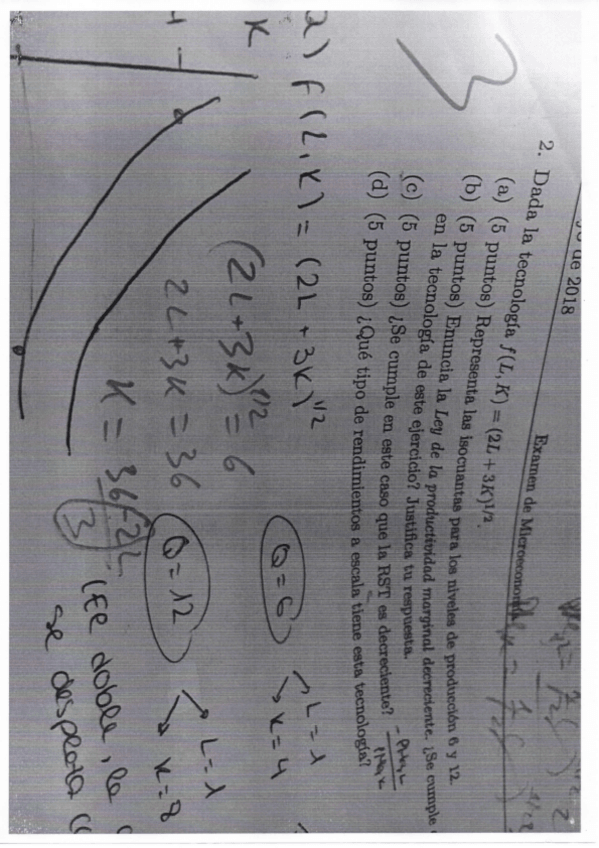 de 2018
Examen de Microeconomía
2. Dada la tecnología f(L, K) = (2L + 3K)^{1/2}.
(a) (5 puntos) Representa las isocuantas para los niveles de producción 6 y 12.
(b) (5 puntos) Enuncia la Ley de la productividad marginal decreciente. ¿Se cumple
en la tecnología de este ejercicio? Justifica tu respuesta.
(c) (5 puntos) ¿Se cumple en este caso que la RST es decreciente?
(d) (5 puntos) ¿Qué tipo de rendimientos a escala tiene esta tecnología?
3
2) f(L, K) = (2L + 3K)^{1/2}
K
(2L + 3K)^{1/2} = 6
2L + 3K = 36
K = 36-2L / 3
Q = 6
L = 1
K = 4
Q = 12
L = 1
K = 8
(El doble, la
se desplaza